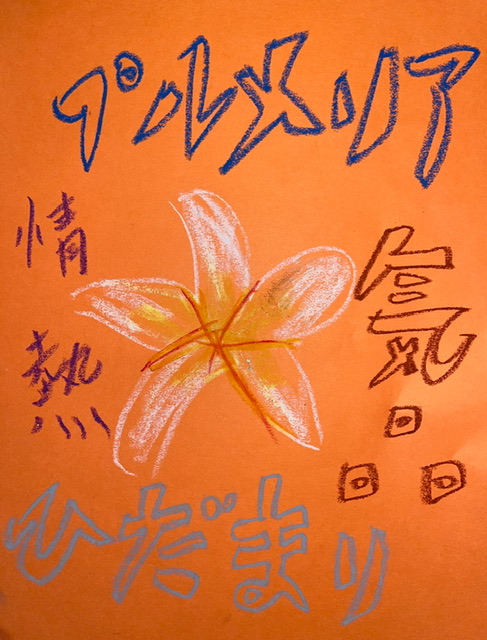 プルメリア
情熱
氣品
ひだまり